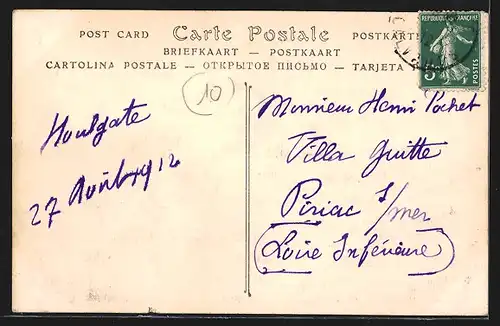 POST CARD Carte Postale POSTKARTE
BRIEFKAART — POSTKAART
CARTOLINA POSTALE — ОТКРЫТОЕ ПИСЬМО — TARJETA
REPUBLIQUE FRANÇAISE
POSTES
5
10
Houlgate
27 Août 1912
Monsieur Henri Pochet
Villa Guitte
Piriac s/mer
(Loire Inférieure)